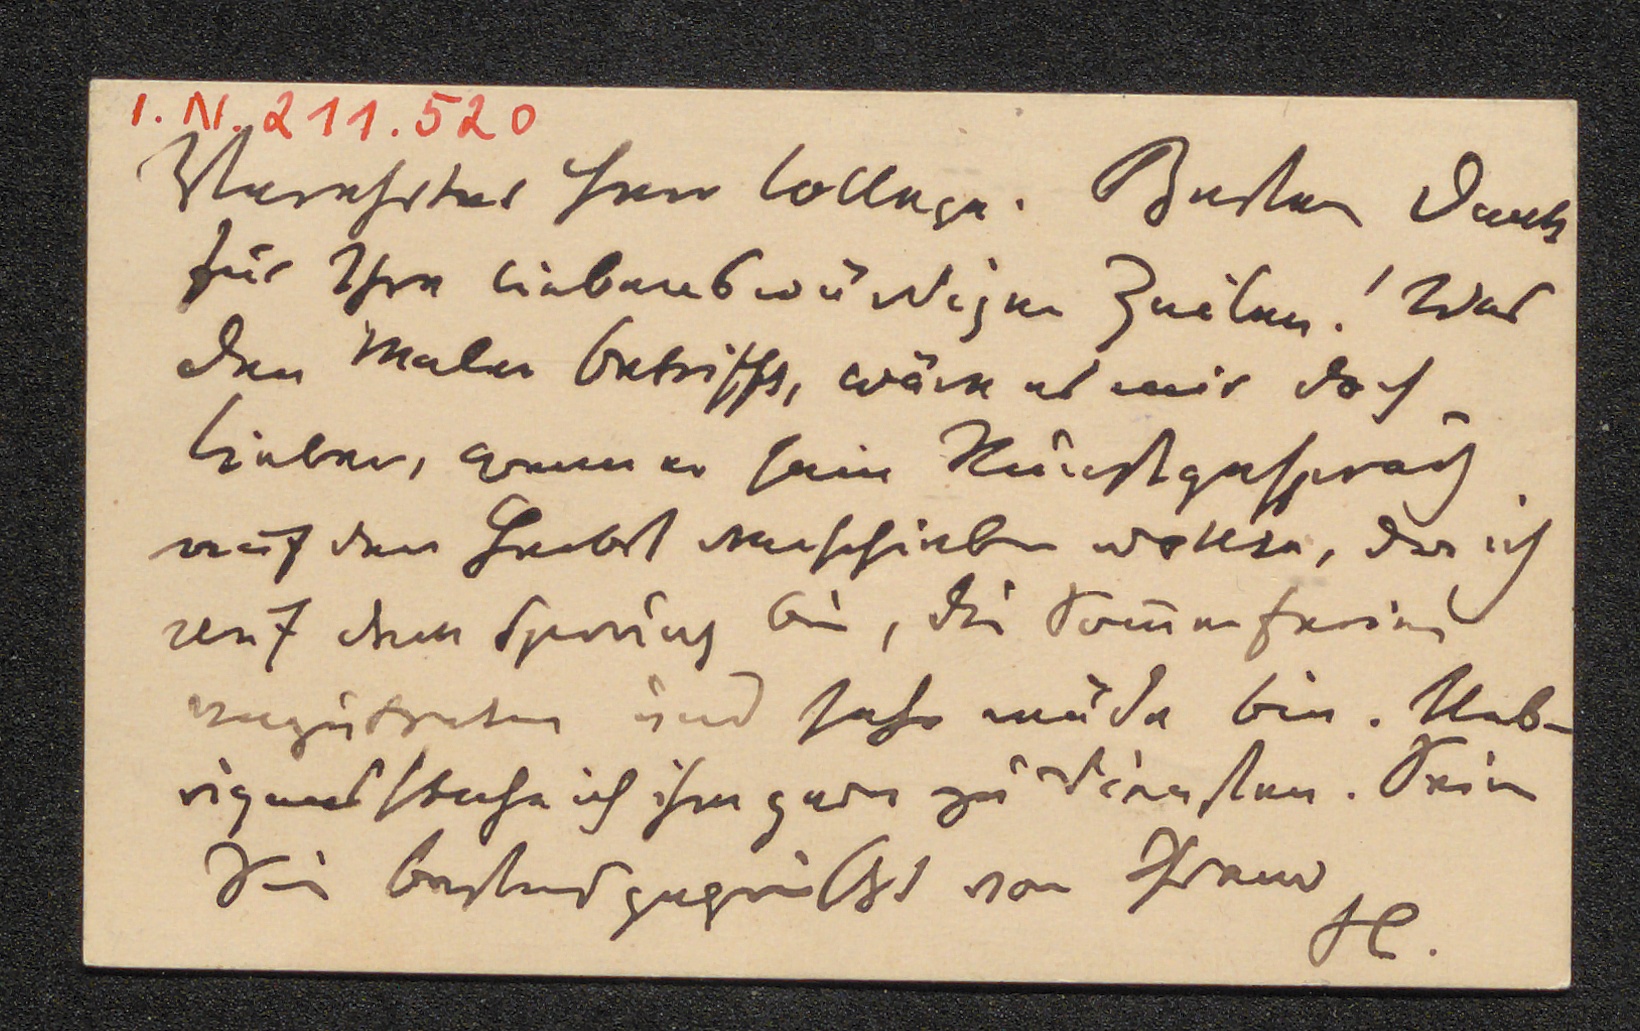 I. N. 211.520
Verehrter Herr College. Besten Dank
für Ihre liebenswürdigen Zeilen! Was
den Maler betrifft, wäre es mir doch
lieber, wenn er sein Kunstgespräch
auf den Herbst verschieben wollte, da ich
auf dem Sprung bin, die Sommerferien
anzutreten und sehr müde bin. Ueb-
rigens stehe ich ihm gern zu Diensten. Seien
Sie bestens gegrüßt von Ihrem
H.